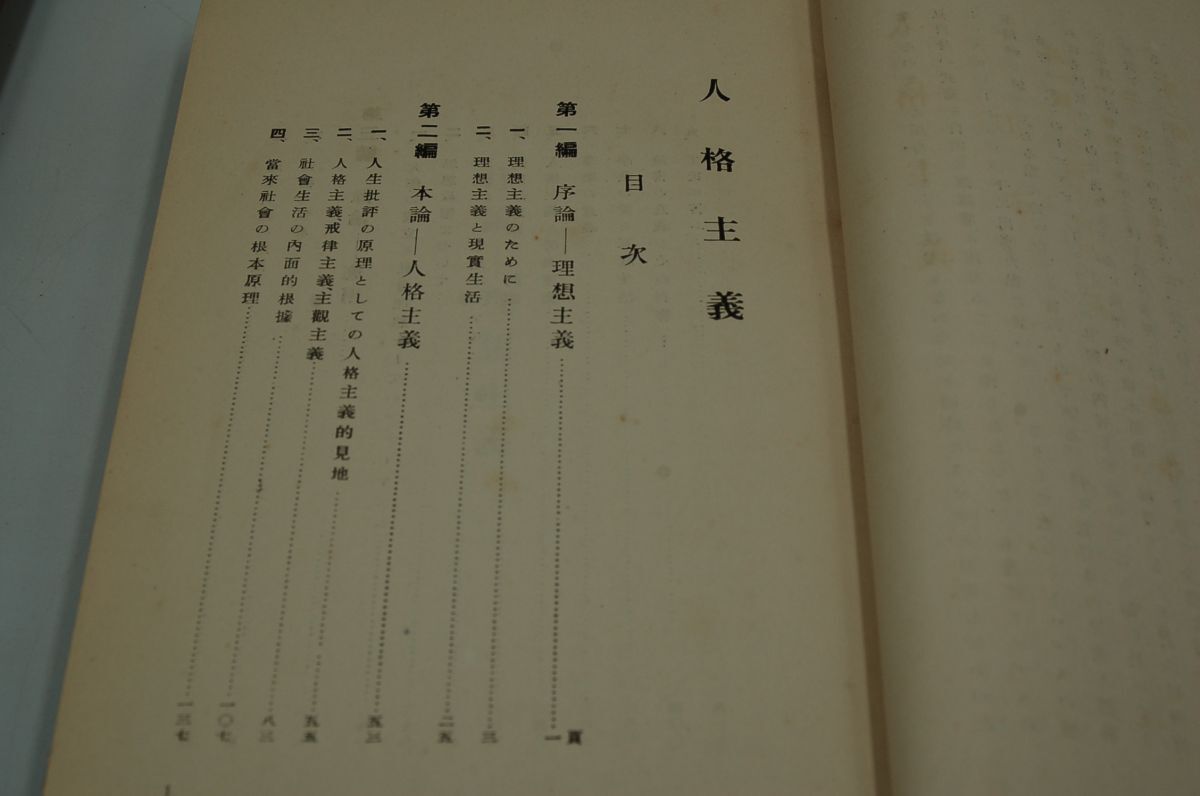 人格主義
目次
第一編 序論—理想主義……一頁
一、理想主義のために……三
二、理想主義と現實生活……二五
第二編 本論—人格主義……五三
一、人生批評の原理としての人格主義的見地……五五
二、人格主義、戒律主義、主觀主義……八三
三、社會生活の內面的根據……一〇七
四、當來社會の根本原理……一三七